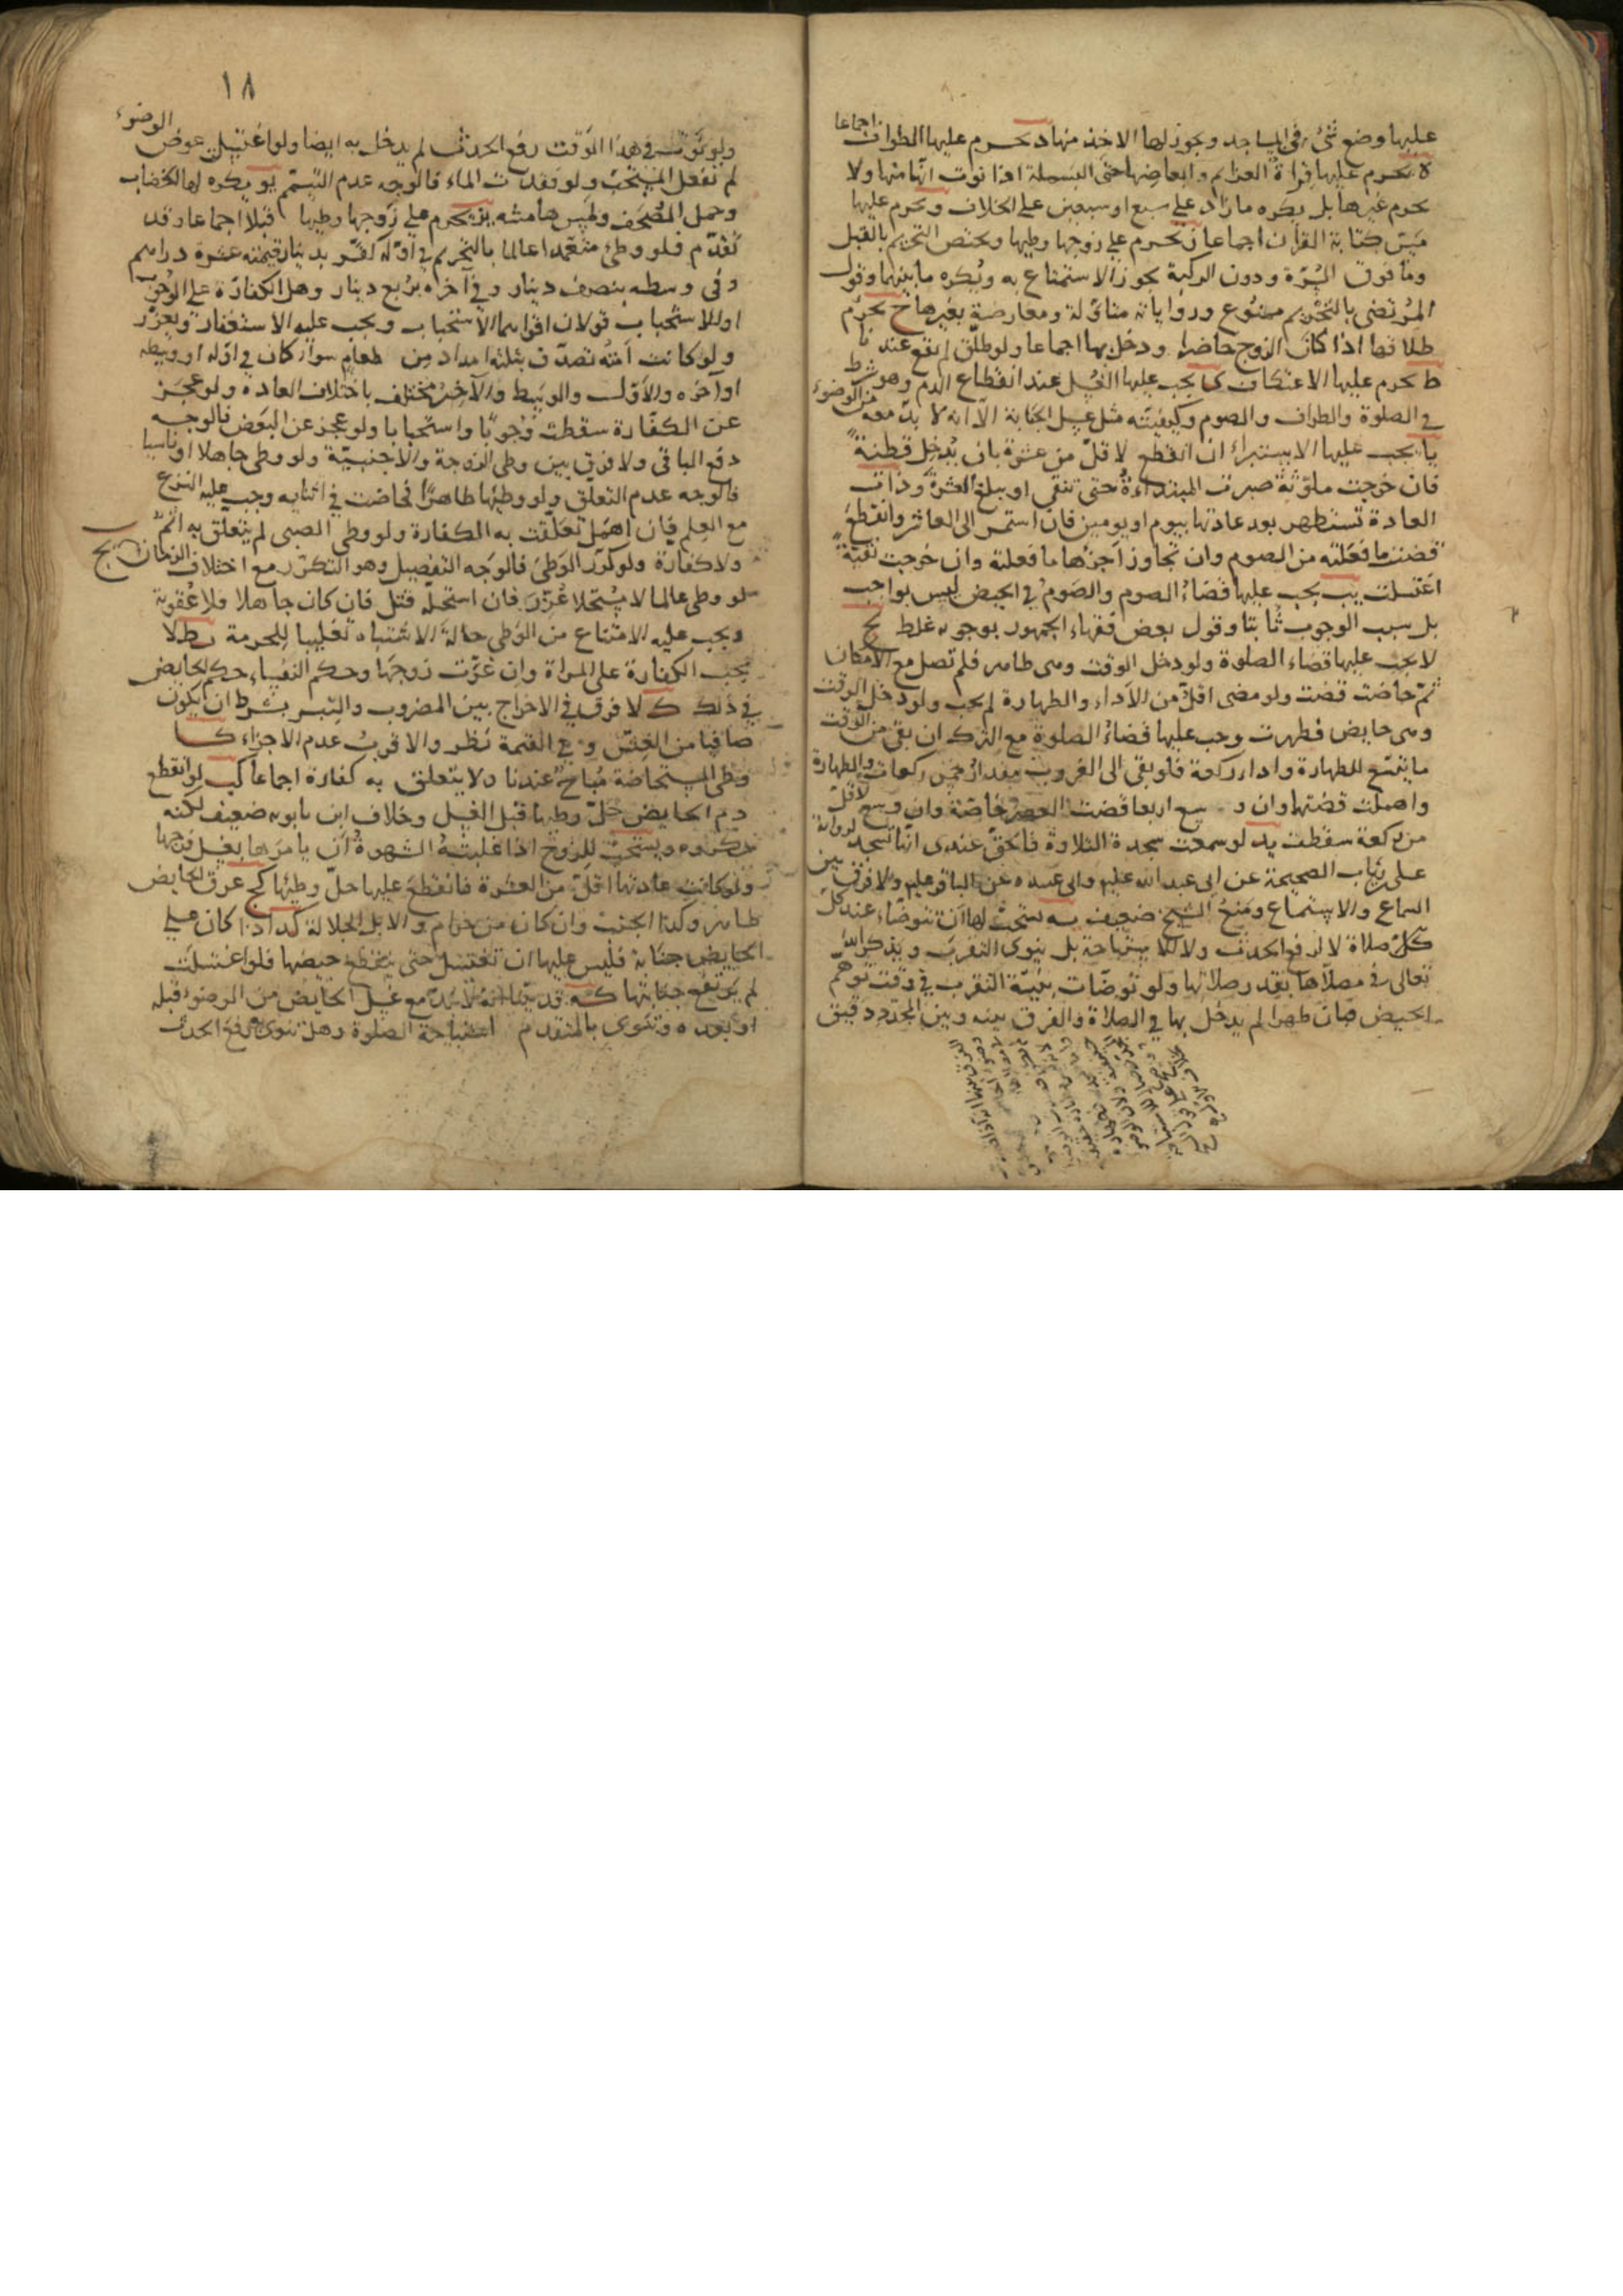 عليها وضع شئ في المساجد ويجوز لها الاخذ منها د يحرم عليها الطواف اجماعا
ه يحرم عليها قراءة العزايم وابعاضها حتى البسملة اذا نوت انها منها ولا
يحرم غيرها بل يكره ما زاد على سبع او سبعين على الخلاف ويحرم عليها
مس كتابة القرآن اجماعا ز يحرم على زوجها وطيها ويختص التحريم بالقبل
وما فوق السرة ودون الركبة يجوز الاستمتاع به ويكره ما بينهما وقول
المرتضى بالتحريم ممنوع ورواياته متاولة ومعارضة بغيرها ح يحرم
طلاقها اذا كان الزوج حاضرا ودخل بها اجماعا ولو طلق لم يقع عندنا
ط يحرم عليها الاعتكاف ي يجب عليها الغسل عند انقطاع الدم وهو شرط
في الصلوة والطواف والصوم وكيفيته مثل غسل الجنابة الا انه لا بد معه من الوضوء
يا يجب عليها الاستبراء ان انقطع لاقل من عشرة بان يدخل قطنة
فان خرجت ملوثة صبرت المبتداءة حتى تنقى او يبلغ العشرة وذات
العادة تستظهر بعد عادتها بيوم او يومين فان استمر الى العاشر وانقطع
قضت ما فعلته من الصوم وان تجاوز اجزءها ما فعلته وان خرجت نقية
اغتسلت يب يجب عليها قضاء الصوم والصوم في الحيض ليس بواجب
بل سبب الوجوب ثابتا وقول بعض فقهاء الجمهور بوجوبه غلط يج
لا يجب عليها قضاء الصلوة ولو دخل الوقت وهى طاهر فلم تصل مع الامكان
ثم حاضت قضت ولو مضى اقل من الاداء والطهارة لم يجب ولو دخل الوقت
وهى حايض فطهرت وجب عليها قضاء الصلوة مع الترك ان بقى من الوقت
ما يتسع للطهارة واداء ركعة فلو بقى الى الغروب مقدار خمس ركعات والطهارة
واهملت قضتها وان وسع اربعا قضت العصر خاصة وان وسع لاقل
من ركعة سقطت يد لو سمعت سجدة التلاوة فالحق عندى انها تسجد لرواية
على بن رئاب الصحيحة عن ابى عبد الله عليه وابى عبيده عن الباقر عليه ولا فرق بين
السماع والاستماع ومنع الشيخ ضعيف يه يستحب لها ان تتوضاء عند كل
كل صلاة لا لرفع الحدث ولا للاستباحة بل ينوى التقرب ويذكر الله
تعالى في مصلاها بقدر صلاتها ولو توضات بنية التقرب في وقت توهم
الحيض فبان طهرا لم يدخل بها في الصلاة والفرق بينه وبين المجدد دقيق
١٨
ولو نوت في هذا الوقت رفع الحدث لم يدخل به ايضا ولو اغتسلت عوض الوضوء
لم تفعل المستحب ولو فقدت الماء فالوجه عدم التيمم يو يكره لها الخضاب
وحمل المصحف ولمس هامشه يز يحرم على زوجها وطيها قبلا اجماعا وقد
تقدم فلو وطئ متعمدا عالما بالتحريم في اوله كفر بدينار قيمته عشرة دراهم
وفى وسطه بنصف دينار وفي آخره بربع دينار وهل الكفارة على الوجوب
او للاستحباب قولان اقواهما الاستحباب ويجب عليه الاستغفار ويعزر
ولو كانت امته تصدق بثلثة امداد من طعام سواء كان في اوله او وسطه
او آخره والاول والوسط والآخر مختلف باختلاف العادة ولو عجز
عن الكفارة سقطت وجوبا واستحبابا ولو عجز عن البعض فالوجه
دفع الباقى ولا فرق بين وطى الزوجة والاجنبية ولو وطى جاهلا او ناسيا
فالوجه عدم التعلق ولو وطيها طاهرا فحاضت في اثنايه وجب عليه النزع
مع العلم فان اهمل تعلقت به الكفارة ولو وطى الصبى لم يتعلق به اثم
ولا كفارة ولو كرر الوطئ فالوجه التفصيل وهو التكرر مع اختلاف الزمان يح
لو وطى عالما لا مستحلا عزر فان استحله قتل فان كان جاهلا فلا عقوبة
ويجب عليه الامتناع من الوطى حالة الاشتباه تغليبا للحرمة يط لا
يجب الكفارة على المراة وان غرت زوجها وحكم النفساء حكم الحايض
في ذلك ك لا فرق في الاخراج بين المضروب والتبر بشرط ان يكون
صافيا من الغش وفي القيمة نظر والاقرب عدم الاجزاء كا
وطى المستحاضة مباح عندنا ولا يتعلق به كفارة اجماعا كب لو انقطع
دم الحايض حل وطيها قبل الغسل وخلاف ابن بابويه ضعيف لكنه
مكروه ويستحب للزوج اذا غلبته الشهوة ان يامرها بغسل فرجها
ولو كانت عادتها اقل من العشرة فانقطع عليها حل وطيها كج عرق الحايض
طاهر وكذا الجنب وان كان من حرام والابل الجلالة كد اذا كان على
الحايض جنابة فليس عليها ان تغتسل حتى ينقطع حيضها فلو اغتسلت
لم يرتفع جنابتها كه قد بينا انه لا بد مع غسل الحايض من الوضوء قبله
او بعده وتنوى بالمتقدم استباحة الصلوة وهل تنوى رفع الحدث